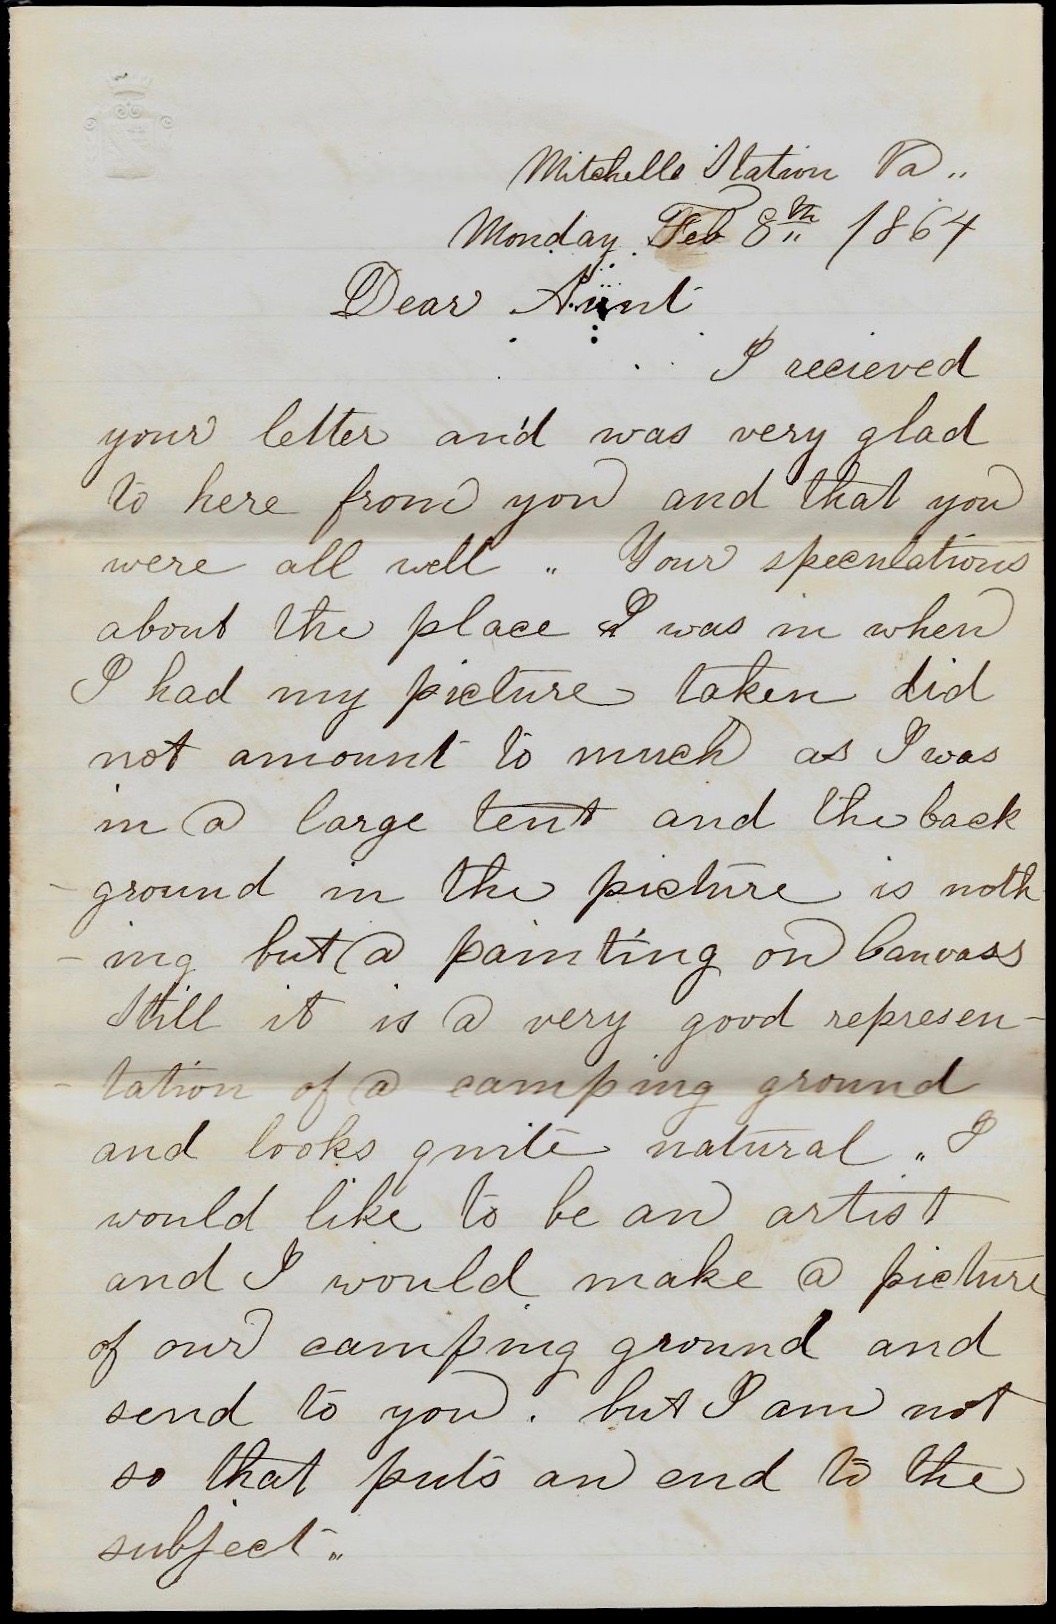 Mitchells Station Va..
Monday Feb 8th 1864
Dear Aunt
I recieved
your letter and was very glad
to here from you and that you
were all well .. Your speculations
about the place I was in when
I had my picture taken did
not amount to much as I was
in a large tent and the back
- ground in the picture is noth
- ing but a painting on Canvass
Still it is a very good represen-
- tation of a camping ground
and looks quite natural .. I
would like to be an artist
and I would make a picture
of our camping ground and
send to you . but I am not
so that puts an end to the
subject ..